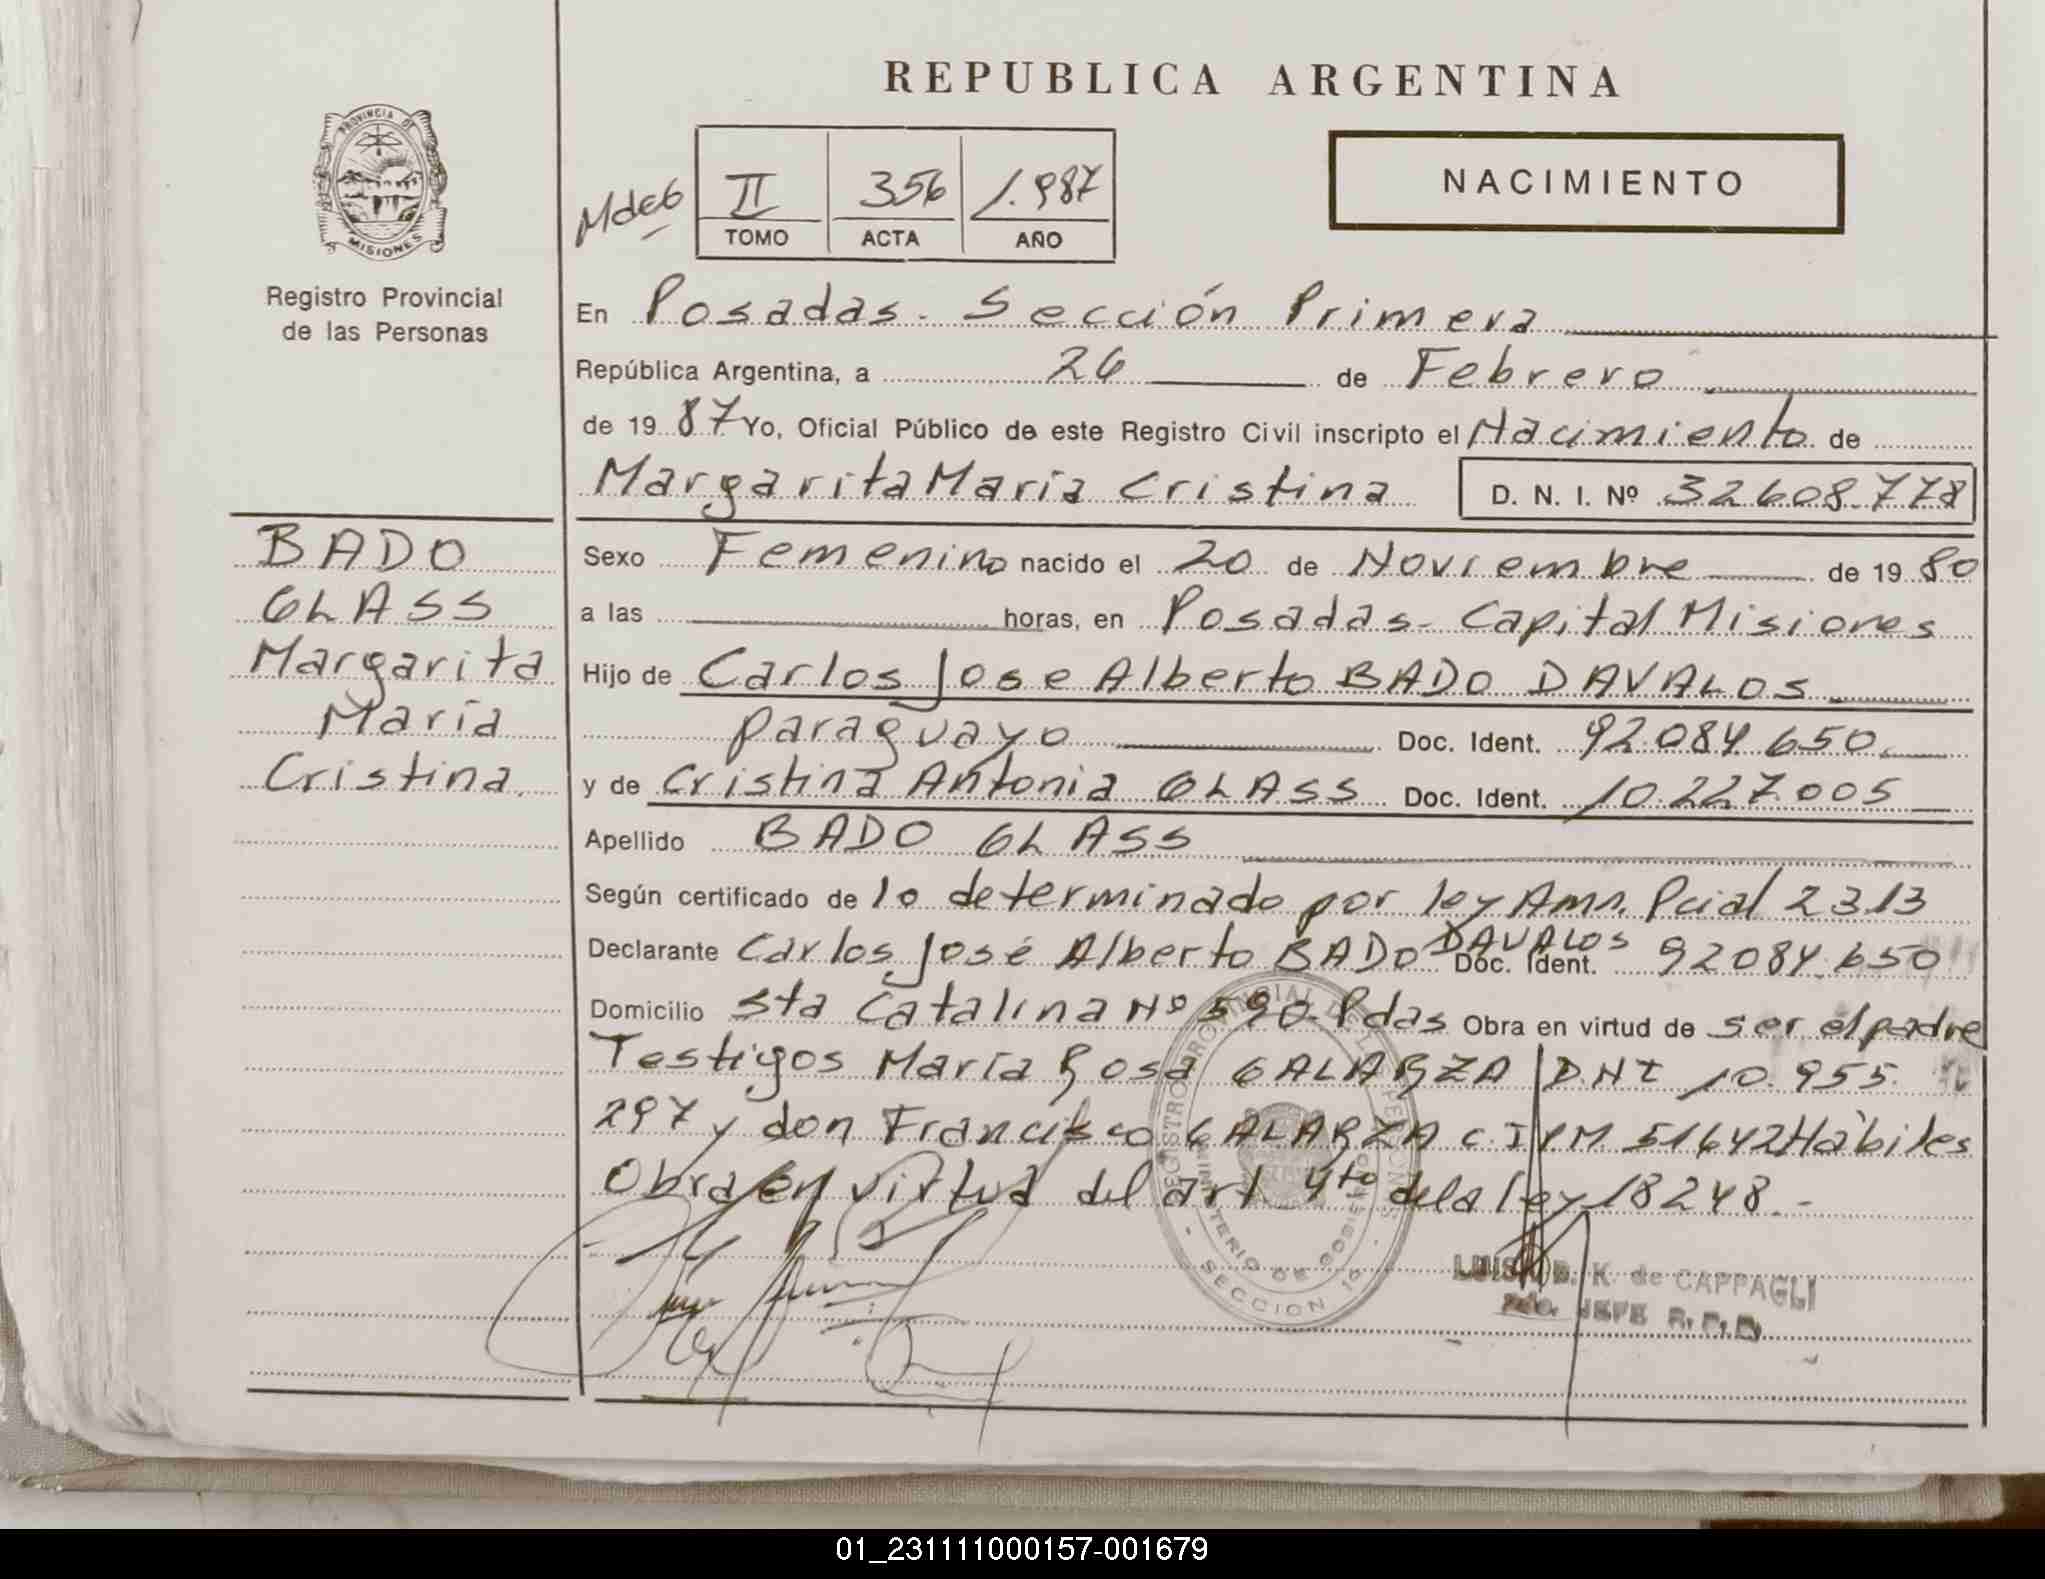 REPUBLICA ARGENTINA
PROVINCIA DE
MISIONES
Registro Provincial
de las Personas
NACIMIENTO
II 356 1.987
TOMO ACTA AÑO
En Posadas. Sección Primera
República Argentina, a 26 de Febrero
de 1987 Yo, Oficial Público de este Registro Civil inscripto el Nacimiento de
Margarita María Cristina D. N. I. Nº 32608.778
BADO
GLASS
Margarita
María
Cristina.
Sexo Femenino nacido el 20 de Noviembre de 1980
a las horas, en Posadas - Capital Misiones
Hijo de Carlos Jose Alberto BADO DAVALOS
paraguayo Doc. Ident. 92.084.650.
y de Cristina Antonia GLASS Doc. Ident. 10.227.005
Apellido BADO GLASS
Según certificado de lo determinado por ley Amn. Pcial 2313
Declarante Carlos José Alberto BADO DAVALOS Doc. Ident. 92084.650
Domicilio Sta Catalina Nº 590 Pdas Obra en virtud de ser el padre
Testigos María Rosa GALARZA DNI 10.955.
297 y don Francisco GALARZA C.I.P.M. 51642 Hábiles
Obra en virtud del art 4to de la ley 18248.-
REGISTRO PROVINCIAL DE LAS PERSONAS
MINISTERIO DE GOBIERNO
SECCION 1a
LUISA B. K. de CAPPAGLI
JEFE R. P. P.
01_231111000157-001679